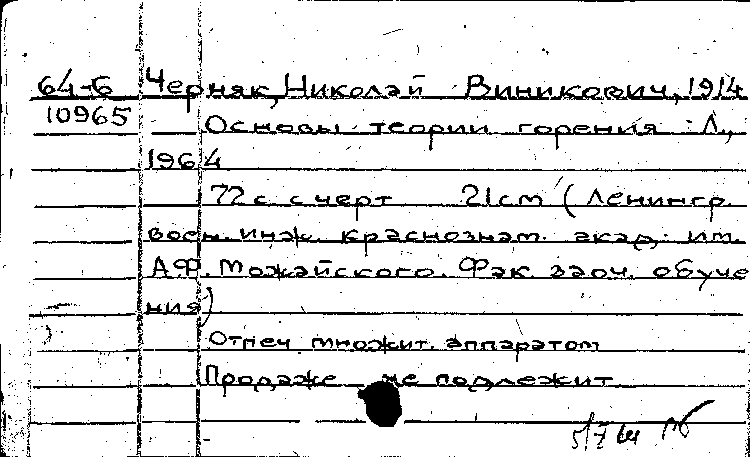 64-6 Черняк, Николай Виникович, 1914
10965 Основы теории горения. Л.,
1964
72 с. с черт 21 cm (Ленингр.
воен. инж. краснознам. акад. им.
А.Ф. Можайского. Фак. заоч. обуче
ния)
Отпеч множит. аппаратом
Продаже не подлежит